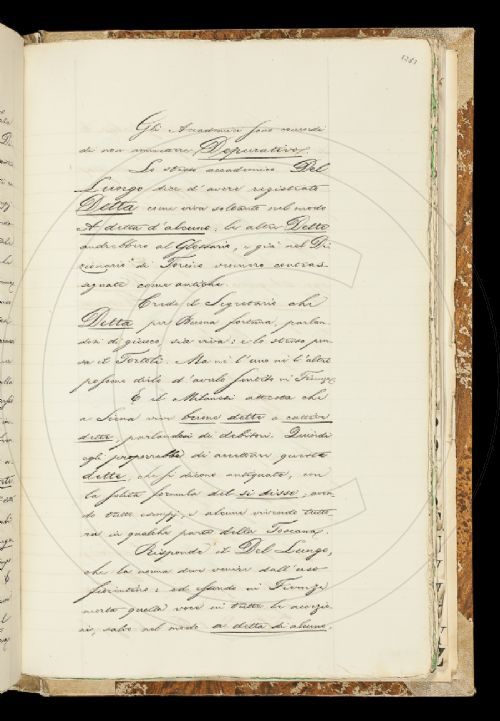 1283
Gli Accademici sono concordi
di non ammettere Depurativo.
Lo stesso accademico Del
Lungo dice d'avere registrato
Detta come viva soltanto nel modo
A detta d'alcuno; le altre Dette
andrebbero al Glossario, e già nel Di-
zionario di Torino vennero contras-
segnate come antiche.
Crede il Segretario che
Detta per Buona fortuna, parlan-
dosi di giuoco, sia viva: e lo stesso pen-
sa il Tortoli. Ma nè l'uno nè l'altro
possono dirlo d'averlo sentito in Firenze.
E il Milanesi attesta che
a Siena vive buone dette e cattive
dette, parlandosi di debitori. Quindi
egli proporrebbe di accettare queste
dette, che si dicono antiquate, con
la solita formula del si disse; aven-
do tutte esempj, e alcune vivendo tutto-
ra in qualche parte della Toscana.
Risponde il Del Lungo,
che la norma deve venire dall'uso
fiorentino; ed essendo in Firenze
morta quella voce in tutte le accezio-
ni, salvo nel modo a detta di alcuno,